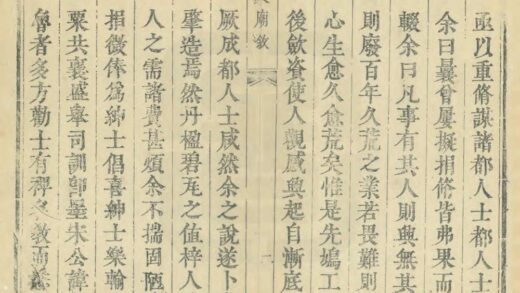 亟以重脩謀諸都人士都人士
余曰曩曾屢擬捐脩皆弗果而
輟余曰凡事有其人則興無其
則廢百年久荒之業若畏難則
心生愈久愈荒矣惟是先鳩工
後斂資使人觀感興起自漸底
廟敘
二
厥成都人士咸然余之說遂卜
肇造焉然丹楹碧瓦之值梓人
人之需諸費甚煩余不揣固陋
捐微俸爲紳士倡喜紳士樂輸
粟共襄盛舉司訓朱公諱
魯者多方勸士有裨